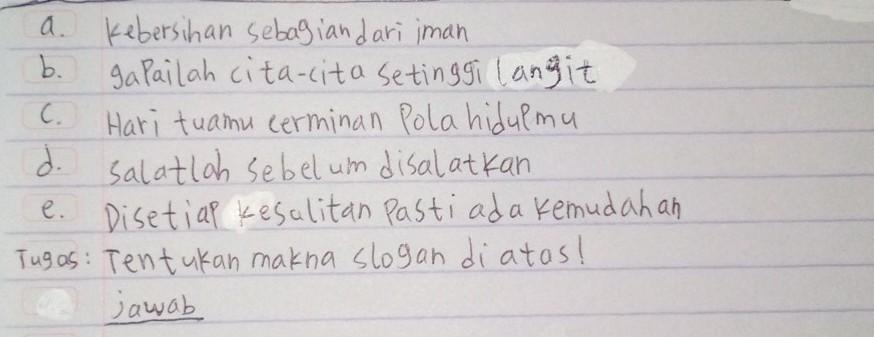 a. Kebersihan sebagian dari iman
b. gapailah cita-cita setinggi langit
c. Hari tuamu cerminan Pola hidupmu
d. salatlah sebelum disalatkan
e. Disetiap kesulitan Pasti ada kemudahan
Tugas: Tentukan makna slogan di atas!
jawab